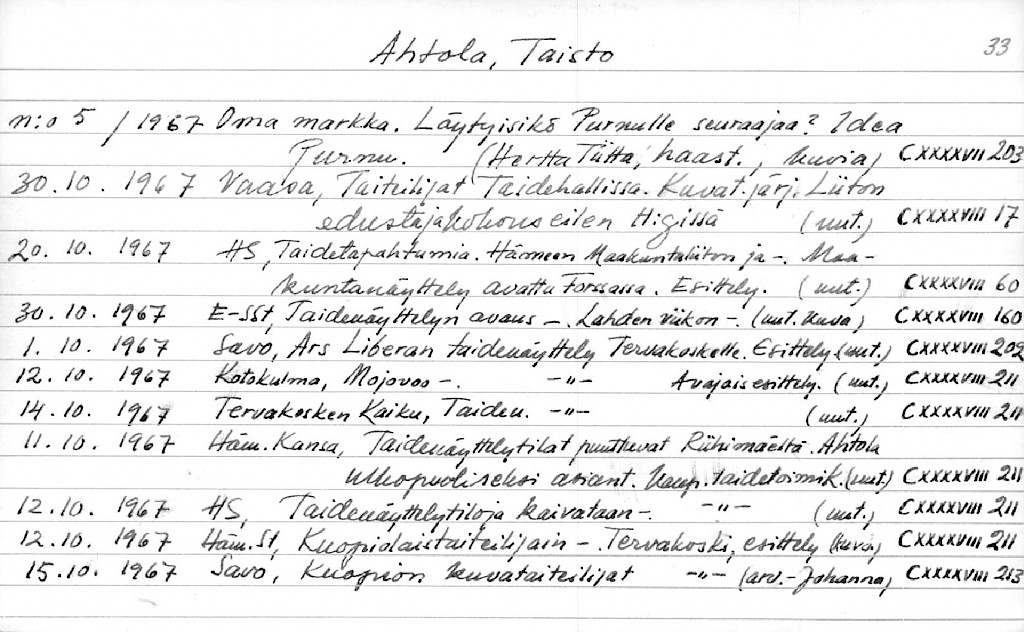 Ahtola, Taisto
33
n:o 5 / 1967 Oma markka. Löytyisikö Purnulle seuraajaa? Idea
Purnu. (Hertta Tiitta, haast., kuvia) CXXXXVII 203
30.10. 1967 Vaasa, Taiteilijat Taidehallissa. Kuvat.järj. Liiton
edustajakokous eilen H:gissä (nut.) CXXXXVIII 17
20.10. 1967 HS, Taidetapahtumia. Hämeen Maakuntaliiton ja -. Maa-
kuntanäyttely avattu Forssassa. Esittely. (nut.) CXXXXVIII 60
30.10. 1967 E-SSt, Taidenäyttelyn avaus -. Lahden viikon -. (nut. kuva) CXXXXVIII 160
1.10. 1967 Savo, Ars Liberan taidenäyttely Tervakoskelle. Esittely (nut.) CXXXXVIII 209
12.10. 1967 Kotokulma, -. -"- Avajaisesittely. (nut.) CXXXXVIII 211
14.10. 1967 Tervakosken Kaiku, Taiden. -"- (nut.) CXXXXVIII 211
11.10. 1967 Häm. Kansa, Taidenäyttelytilat puuttuvat Riihimäeltä. Ahtola
ulkopuoliseksi asiant. kaup. taidetoimik. (nut.) CXXXXVIII 211
12.10. 1967 HS, Taidenäyttelytiloja kaivataan -. -"- (nut.) CXXXXVIII 211
12.10. 1967 Häm. St, Kuopiolaistaiteilijain -. Tervakoski, esittely (kuva) CXXXXVIII 211
15.10. 1967 Savo, Kuopion kuvataiteilijat -"- (arv. - Johanna) CXXXXVIII 213